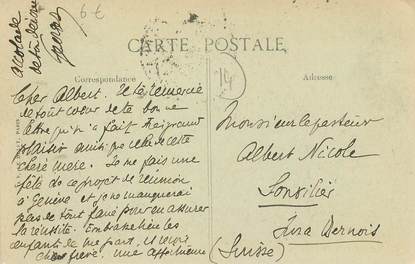 6 €
accolade
de ton
Georges
CARTE POSTALE
14
Correspondance
Adresse
Cher Albert. Je te remercie
de tout cœur de ta bonne
lettre qui m'a fait très grand
plaisir ainsi que celle de cette
chère mère. Je me fais une
fête de ce projet de réunion
à Genève et je ne manquerai
pas de tout faire pour en assurer
la réussite. Embrasse bien les
enfants de ma part, et reçois
cher frère, une affectueuse
Monsieur le pasteur
Albert Nicole
Sonvilier
Jura Bernois
(Suisse)